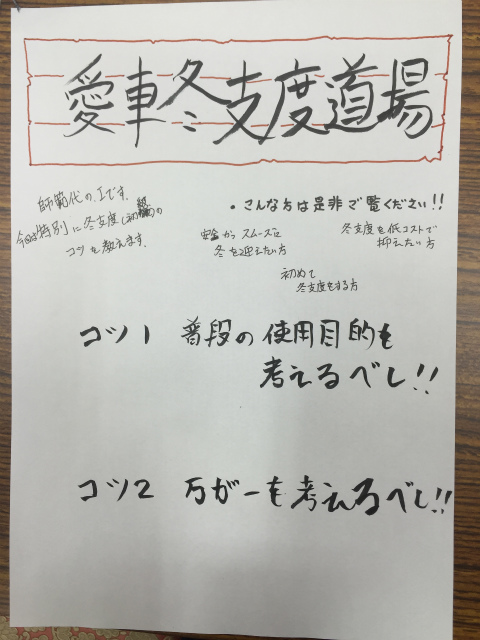 愛車冬支度道場
師範代の、Iです。
今回は特別に冬支度(初級)の
コツを教えます。
・こんな方は是非ご覧ください!!
安全かつスムーズに
冬を迎えたい方
冬支度を低コストで
抑えたい方
初めて
冬支度をする方
コツ1 普段の使用目的も
考えるべし!!
コツ2 万が一を考えるべし!!